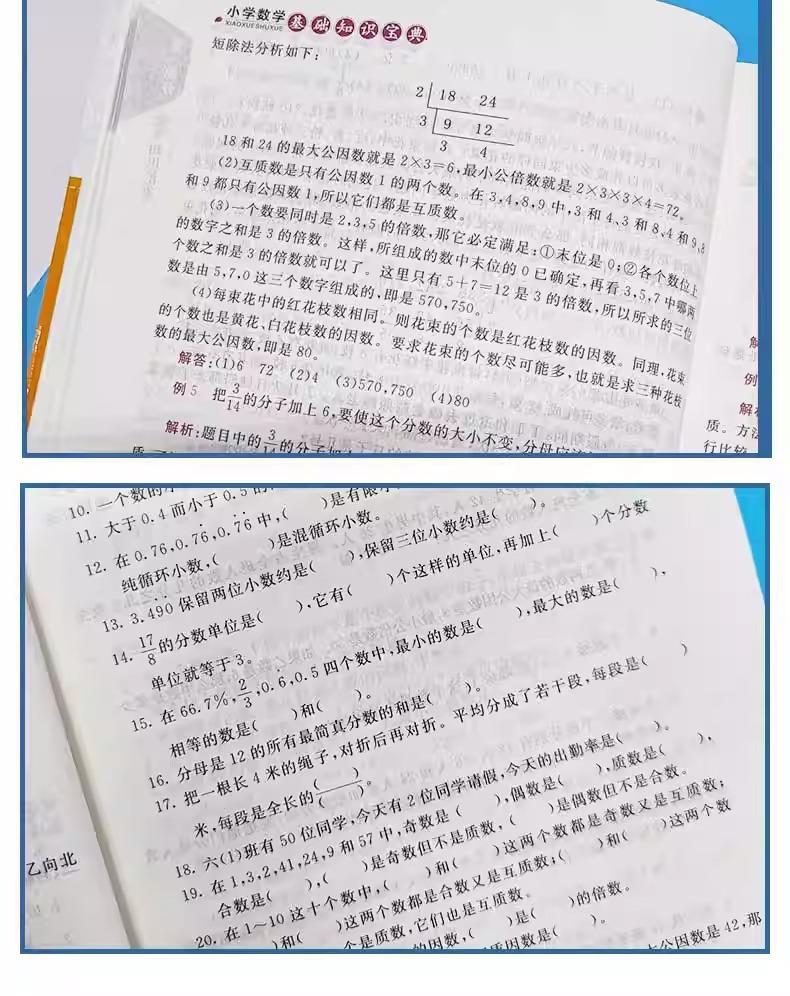 小学数学
XIAOXUESHUXUE
基础知识宝典
短除法分析如下：
2 18 24
3 9 12
3 4
18和24的最大公因数就是2×3=6,最小公倍数就是2×3×3×4=72。
(2)互质数是只有公因数1的两个数。在3,4,8,9中,3和4、3和8、4和9、8
和9都只有公因数1,所以它们都是互质数。
(3)一个数要同时是2,3,5的倍数,那它必定满足:①末位是0;②各个数位上
的数字之和是3的倍数。这样,所组成的数中末位的0已确定,再看3,5,7中哪两
个数之和是3的倍数就可以了。这里只有5+7=12是3的倍数,所以所求的三位
数是由5,7,0这三个数字组成的,即是570,750。
(4)每束花中的红花枝数相同。则花束的个数是红花枝数的因数。同理,花束
的个数也是黄花、白花枝数的因数。要求花束的个数尽可能多,也就是求三种花枝
数的最大公因数,即是80。
解答:(1)6 72 (2)4 (3)570,750 (4)80
例5 把3/14的分子加上6,要使这个分数的大小不变,分母应
解析:题目中的3/14的分子加
例
解
质。方法
行比较
10. 一个数的
11. 大于0.4而小于0.5的
12. 在0.76,0.7̇6̇,0.76̇中,( )是有限小
纯循环小数,( )是混循环小数。
13. 3.4̇90̇保留两位小数约是( ),保留三位小数约是( )。
14. 17/8的分数单位是( ),它有( )个这样的单位,再加上( )个分数
单位就等于3。
15. 在66.7%,2/3,0.6,0.5四个数中,最小的数是( ),最大的数是( ),
相等的数是( )和( )。
16. 分母是12的所有最简真分数的和是( )。
17. 把一根长4米的绳子,对折后再对折。平均分成了若干段,每段是( )
米,每段是全长的( )/( )。
18. 六(1)班有50位同学,今天有2位同学请假,今天的出勤率是( )。
19. 在1,3,2,41,24,9和57中,奇数是( ),偶数是( ),质数是( ),
合数是( ),( )是奇数但不是质数,( )是偶数但不是合数。
20. 在1~10这十个数中,( )和( )这两个数都是奇数又是互质数;
( )和( )这两个数都是合数又是互质数;( )和( )这两个数
个是质数,它们也是互质数。
的因数,( )是( )的倍数。
质因数是( )。
公因数是42,那
乙向北